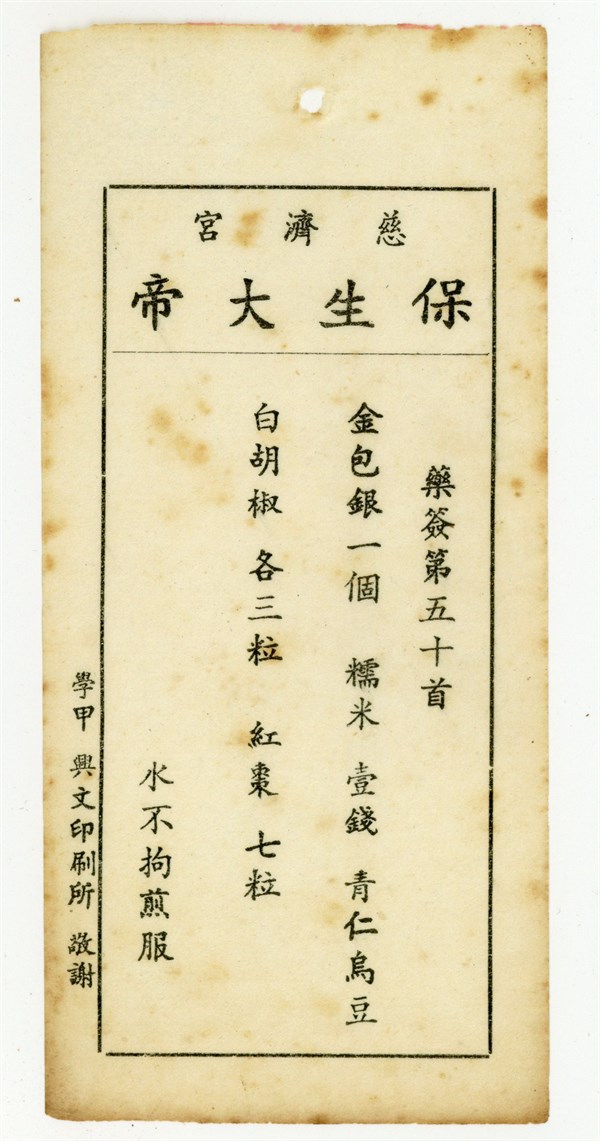 慈濟宮
保生大帝
藥簽第五十首
金包銀一個 糯米 壹錢 青仁烏豆
白胡椒 各三粒 紅棗 七粒
水不拘煎服
學甲 興文印刷所 敬謝